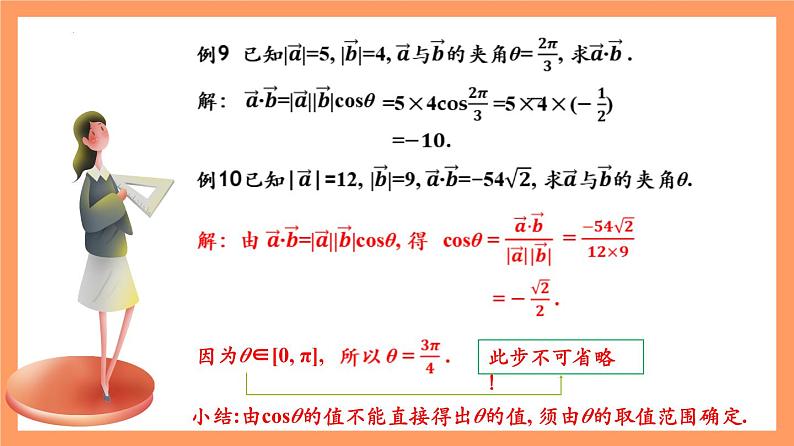 例9 已知|a⃗|=5, |b⃗|=4, a⃗与b⃗的夹角θ= 2π/3, 求a⃗·b⃗ .
解： a⃗·b⃗=|a⃗||b⃗|cosθ =5×4cos2π/3 =5×4×(−1/2)
=−10.
例10已知|a⃗|=12, |b⃗|=9, a⃗·b⃗=−54√2, 求a⃗与b⃗的夹角θ.
解：由 a⃗·b⃗=|a⃗||b⃗|cosθ, 得 cosθ = a⃗·b⃗/|a⃗||b⃗| = −54√2/12×9
= − √2/2 .
因为θ∈[0, π], 所以 θ = 3π/4 . 此步不可省略
!
小结:由cosθ的值不能直接得出θ的值, 须由θ的取值范围确定.